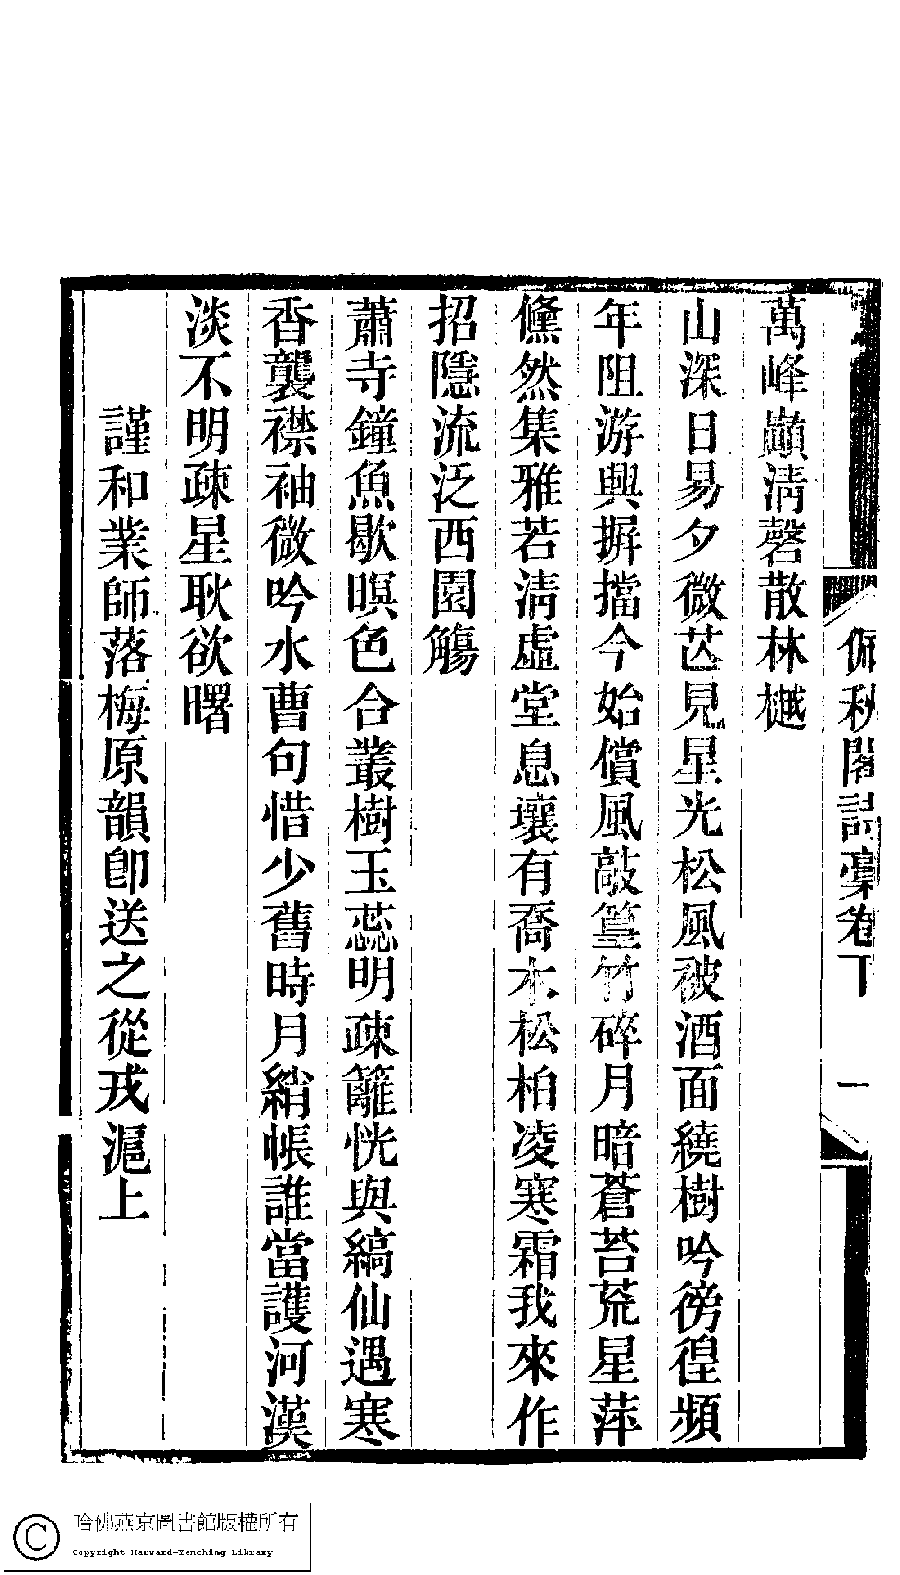 佩秋閣詩稾卷下 一
萬峰巔清磬散林樾
山深日易夕微芒見星光松風被酒面繞樹吟徬徨頻
年阻游興摒擋今始償風敲篁竹碎月暗蒼苔荒星萍
儵然集雅若清虛堂息壤有喬木松柏凌寒霜我來作
招隱流泛西園觴
蕭寺鐘魚歇暝色合叢樹玉蕊明疎籬恍與縞仙遇寒
香襲襟袖微吟水曹句惜少舊時月綃帳誰當護河漢
淡不明疎星耿欲曙
謹和業師落梅原韻卽送之從戎滬上
哈佛燕京圖書館版權所有
Copyright Harvard-Yenching Library